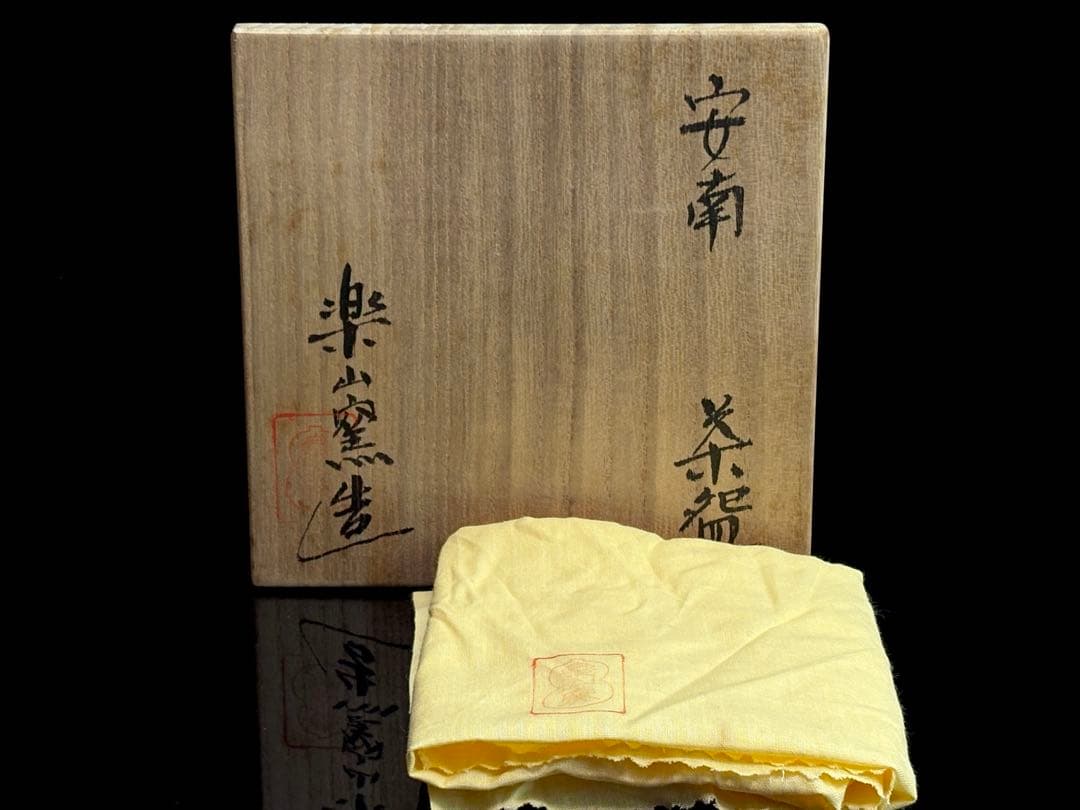 安南
茶盌
楽山窯造